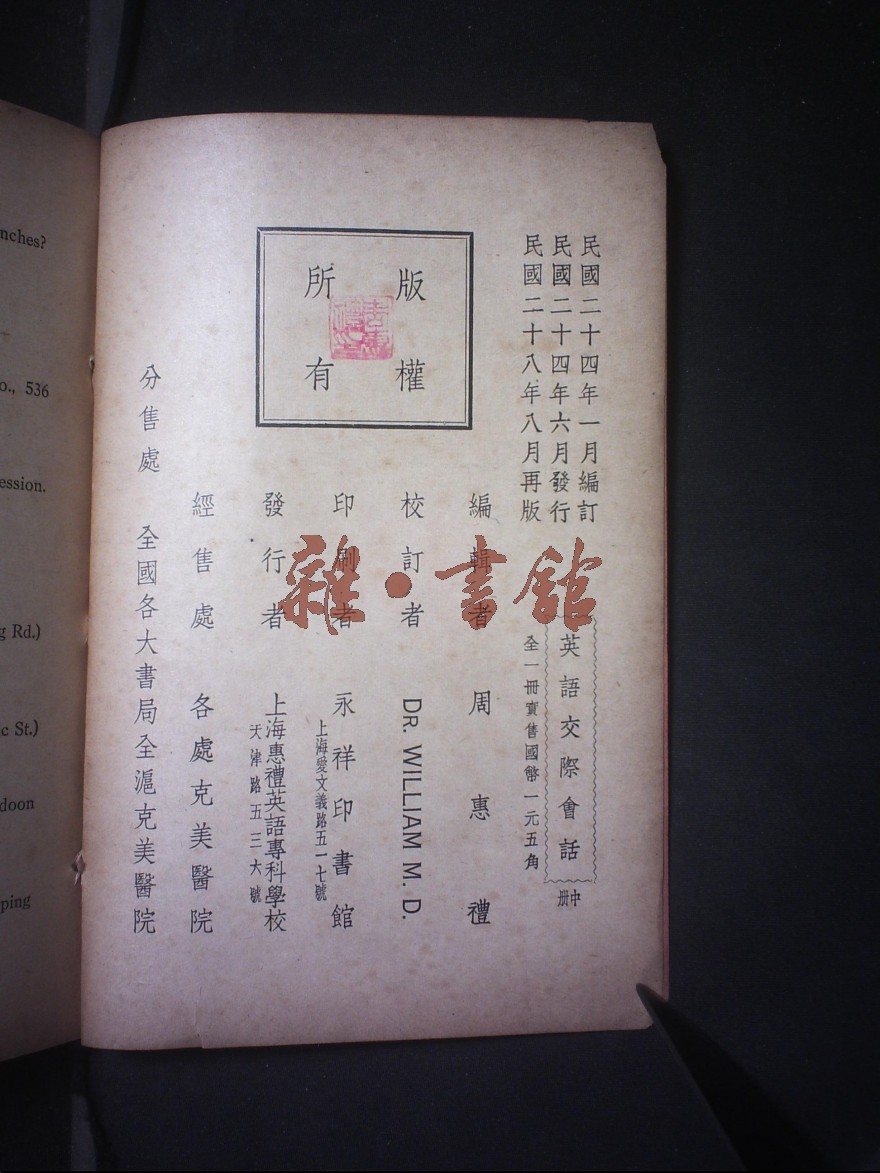 民國二十四年一月編訂
民國二十四年六月發行
民國二十八年八月再版
英語交際會話
中册
全一冊實售國幣一元五角
版權
所有
編輯者 周惠禮
校訂者 DR. WILLIAM M. D.
印刷者 永祥印書館
上海愛文義路五一七號
發行者 上海惠禮英語專科學校
天津路五三六號
經售處 各處克美醫院
分售處 全國各大書局全滬克美醫院
雜·書館
nches?
o., 536
ession.
g Rd.)
ic St.)
doon
ping